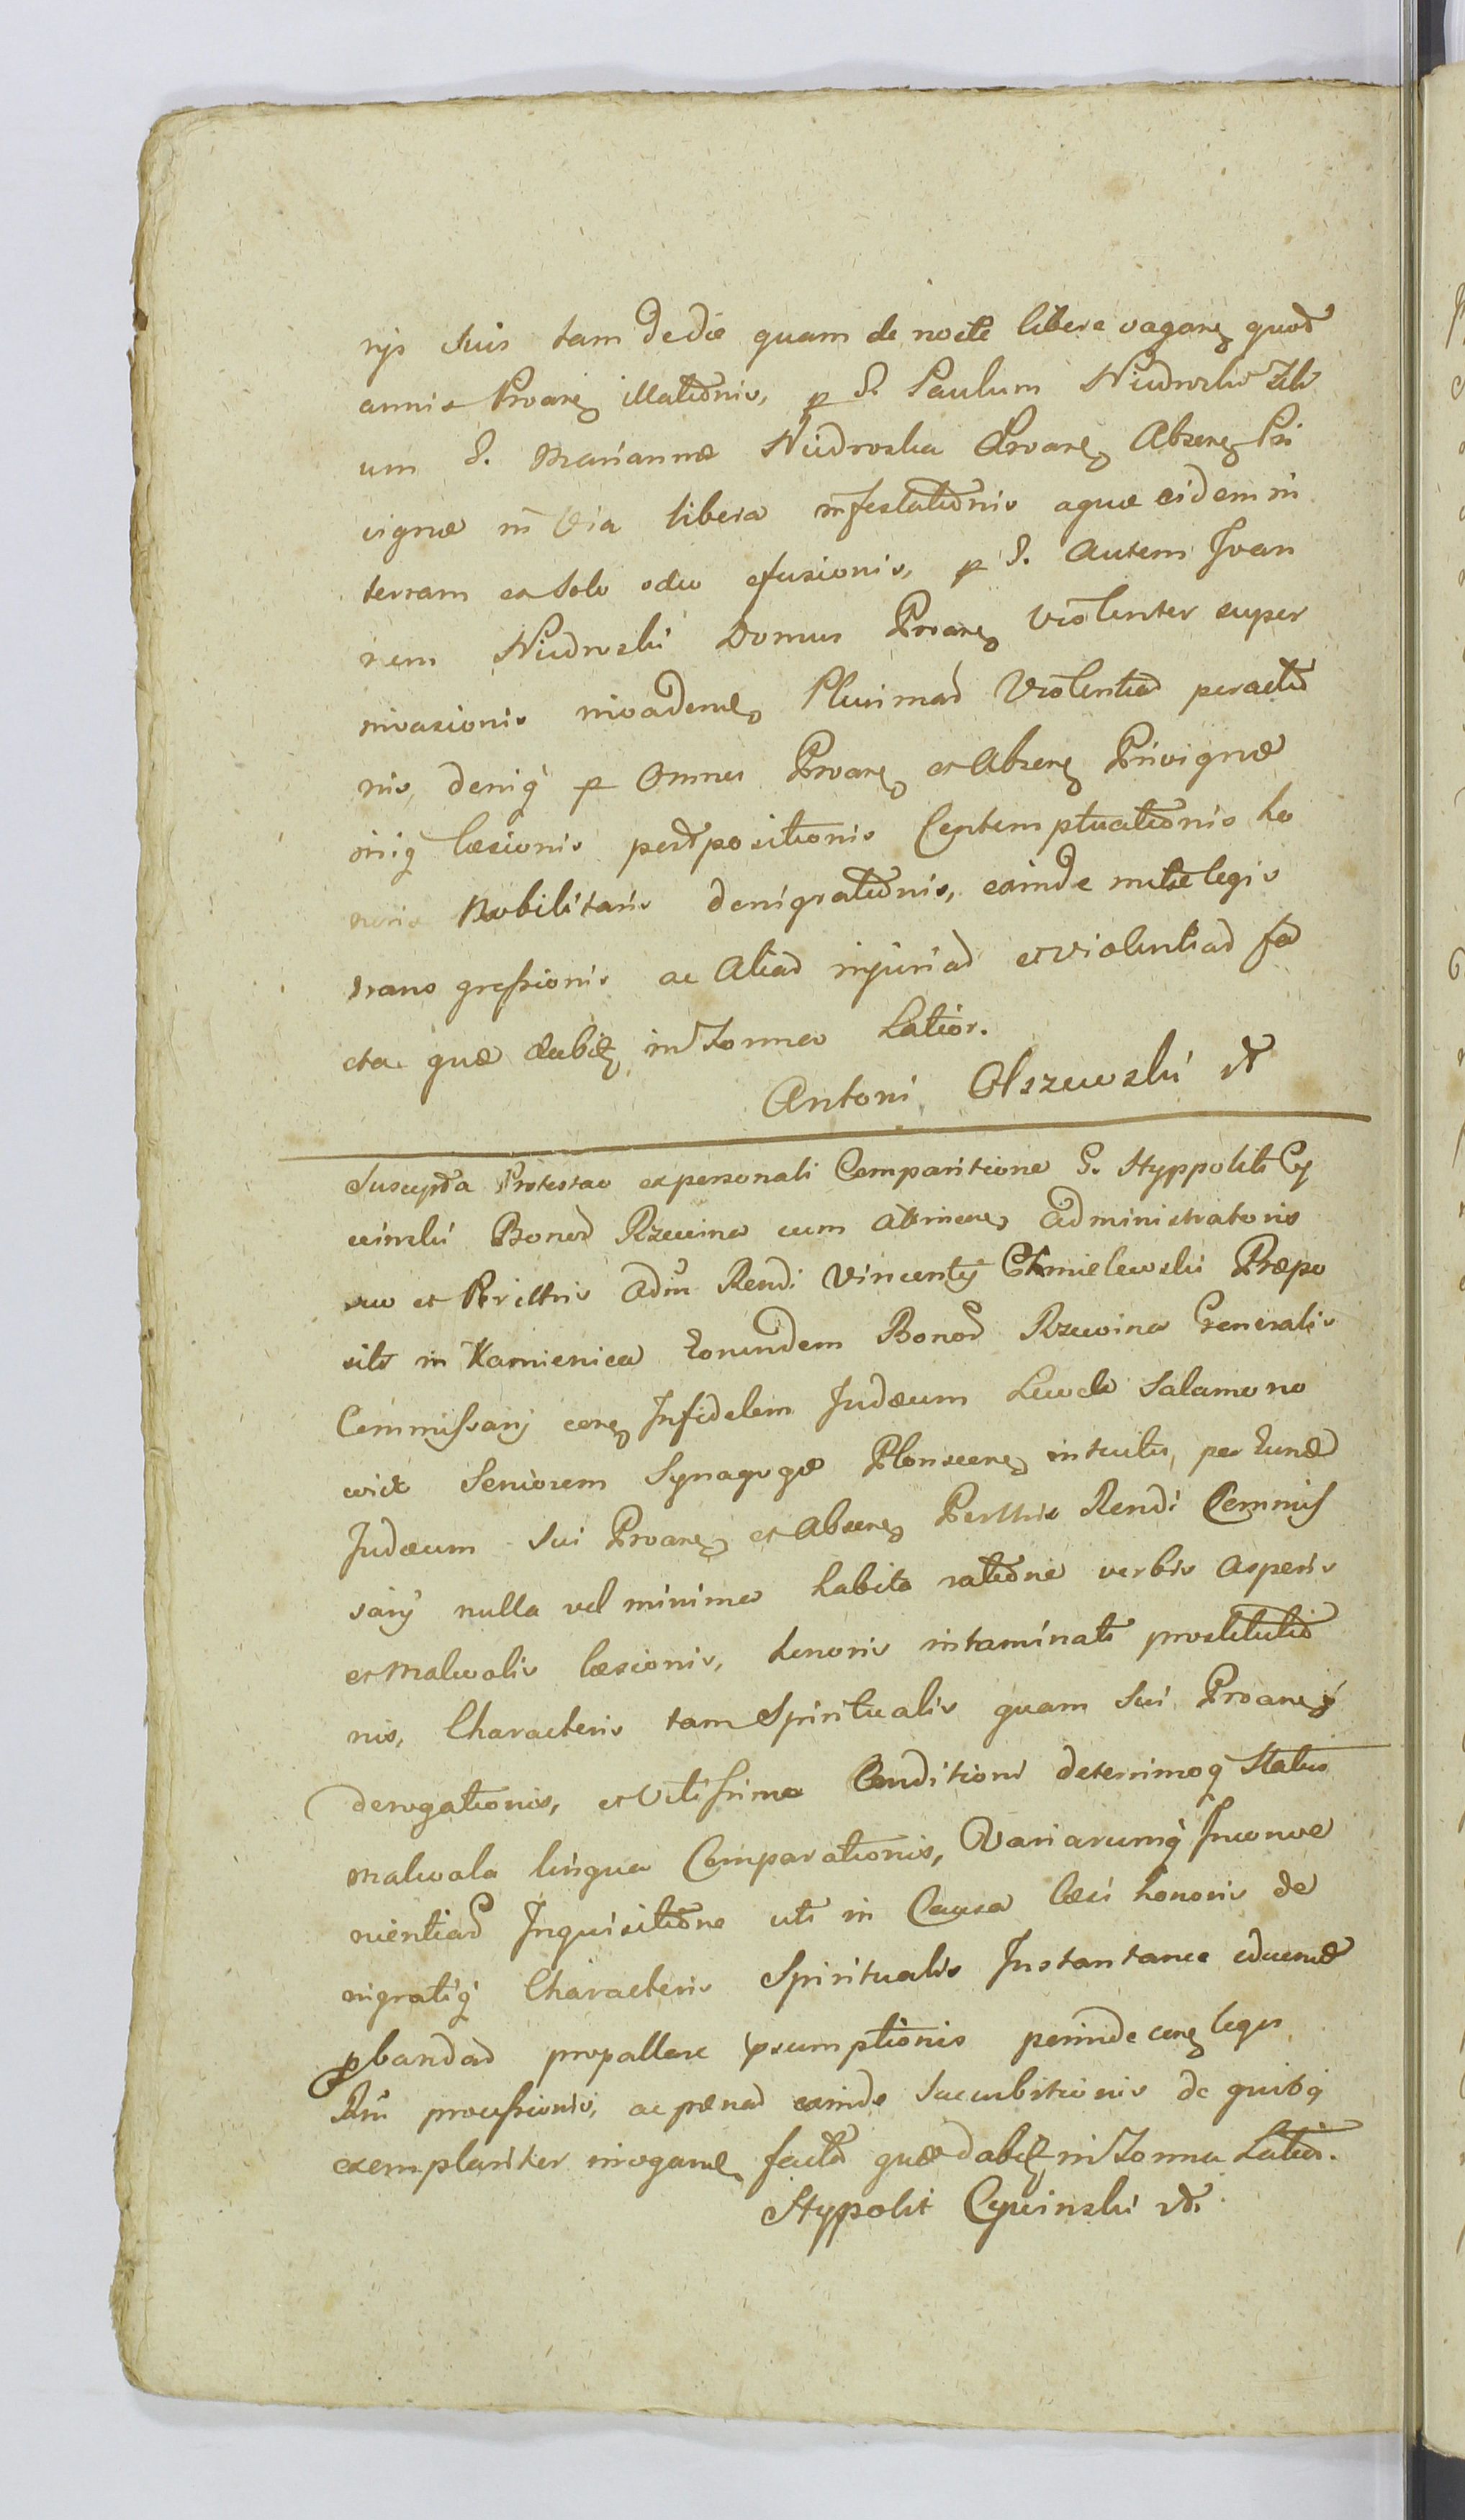 rÿs suis tam de die quam de nocte libere vagarę quod
annis Proarę illationis, p G. Paulum Niedroski
um G. Mariannæ Niedroska Proarę Absenę Pri
vignæ in via libera infestationis aquæ eidem in
terram ex solo odio efusionis, p G. Autem Joan
nem Niedroski Domus Proarę violenter super
invasionis Plurimar violentiar peractio
nis, deniq p Omnes Proarę et Absenę Privignæ
læsionis Contemptuationis ho
noris Nobilitaris denigrationis, exinde legis
transgressionis ac aliar injuriar et violentiar fa
cta quæ dabię in Forma Latior.
Antoni Olszewski
Suscepta Protestao ex personali Comparitione G. Hyppoliti Cy
winski Bonor Rzewina cum Attinen Administratoris
suo et Perilltris Adm Rendi Vincentÿ Chmielewski Præpo
siti in Kamienica Eorundem Bonor Rzewina Generalis
Commissarij conę Infidelem Judæum Lewek Salamono
wicz Seniorem Synagogæ Plonscenę intuitu, per Eund
Judæum sui Proarę et Absenę Perilltris Rendi Commis
sarÿ nulla vel minima habita ratione verbis asperis
et malevolis læsionis, honoris intaminati prostitutio
nis, Characteris tam Spiritualis quam sui Proarę
derogationis, et vilissima Conditione deterrimoq Statu
malevola lingua Comparationis, Variarumq Inconve
nientiar Inquisitione uti in Causa læsi honoris de
nigratiq Characteris Spiritualis Instantanee educend
pbandar propallare psumptionis perinde conę leges
processionis, ac pænar exinde succubitionis de quibq
exemplariter irrogan facta quæ dabię in Forma Latior.
Hyppolit Cywinski